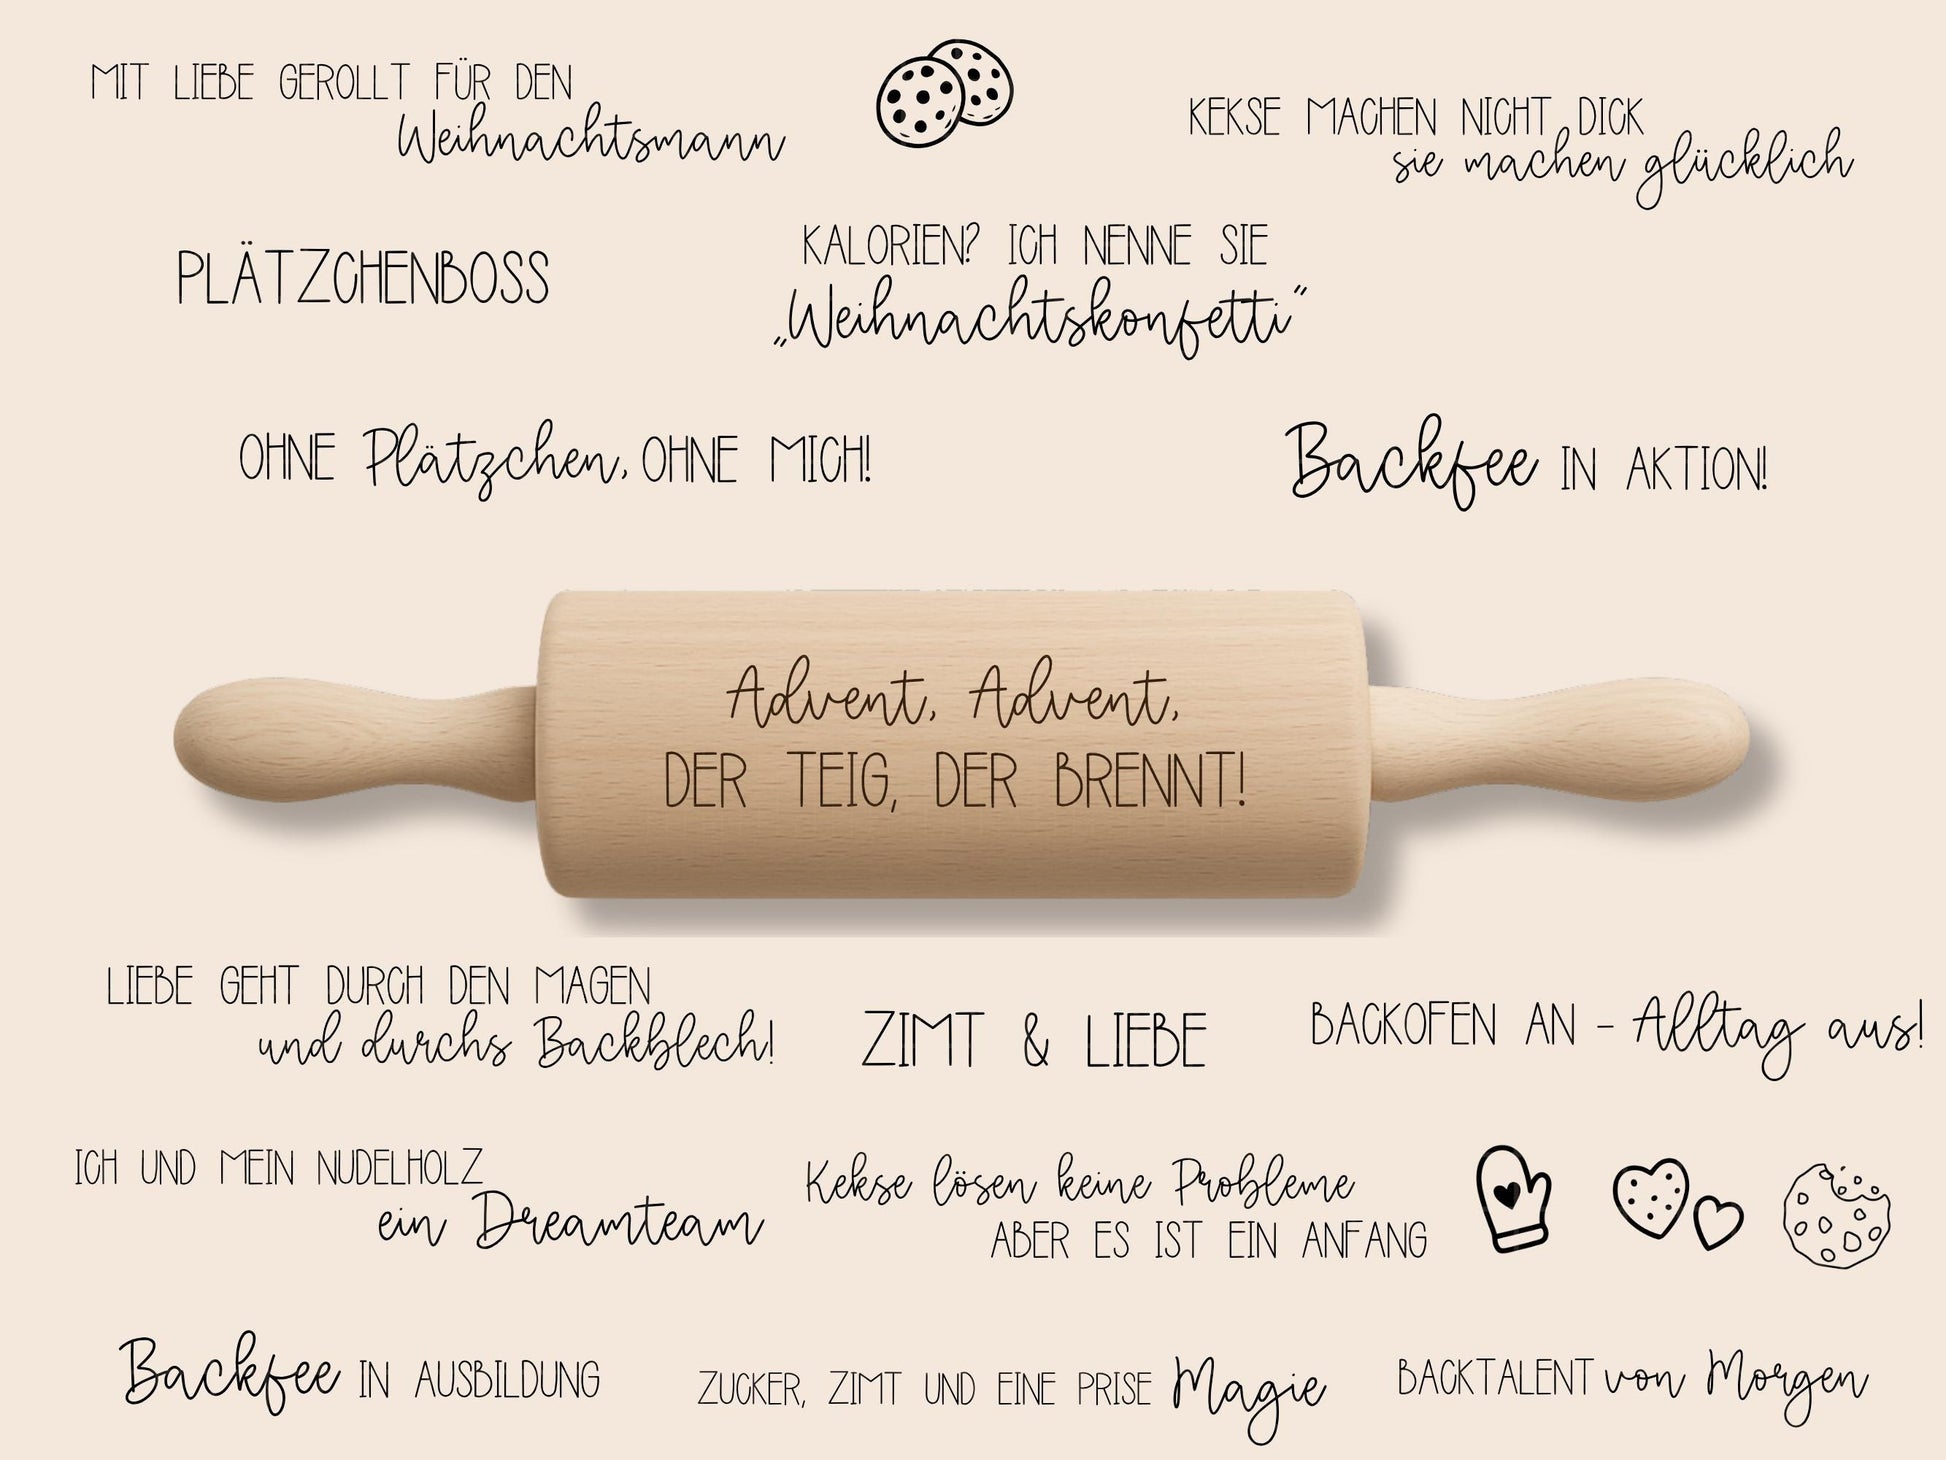 MIT LIEBE GEROLLT FÜR DEN
Weihnachtsmann
KEKSE MACHEN NICHT DICK
sie machen glücklich
PLÄTZCHENBOSS
KALORIEN? ICH NENNE SIE
„Weihnachtskonfetti“
OHNE Plätzchen, OHNE MICH!
Backfee IN AKTION!
Advent, Advent,
DER TEIG, DER BRENNT!
LIEBE GEHT DURCH DEN MAGEN
und durchs Backblech!
ZIMT & LIEBE
BACKOFEN AN - Alltag aus!
ICH UND MEIN NUDELHOLZ
ein Dreamteam
Kekse lösen keine Probleme
ABER ES IST EIN ANFANG
Backfee IN AUSBILDUNG
ZUCKER, ZIMT UND EINE PRISE Magie
BACKTALENT von Morgen